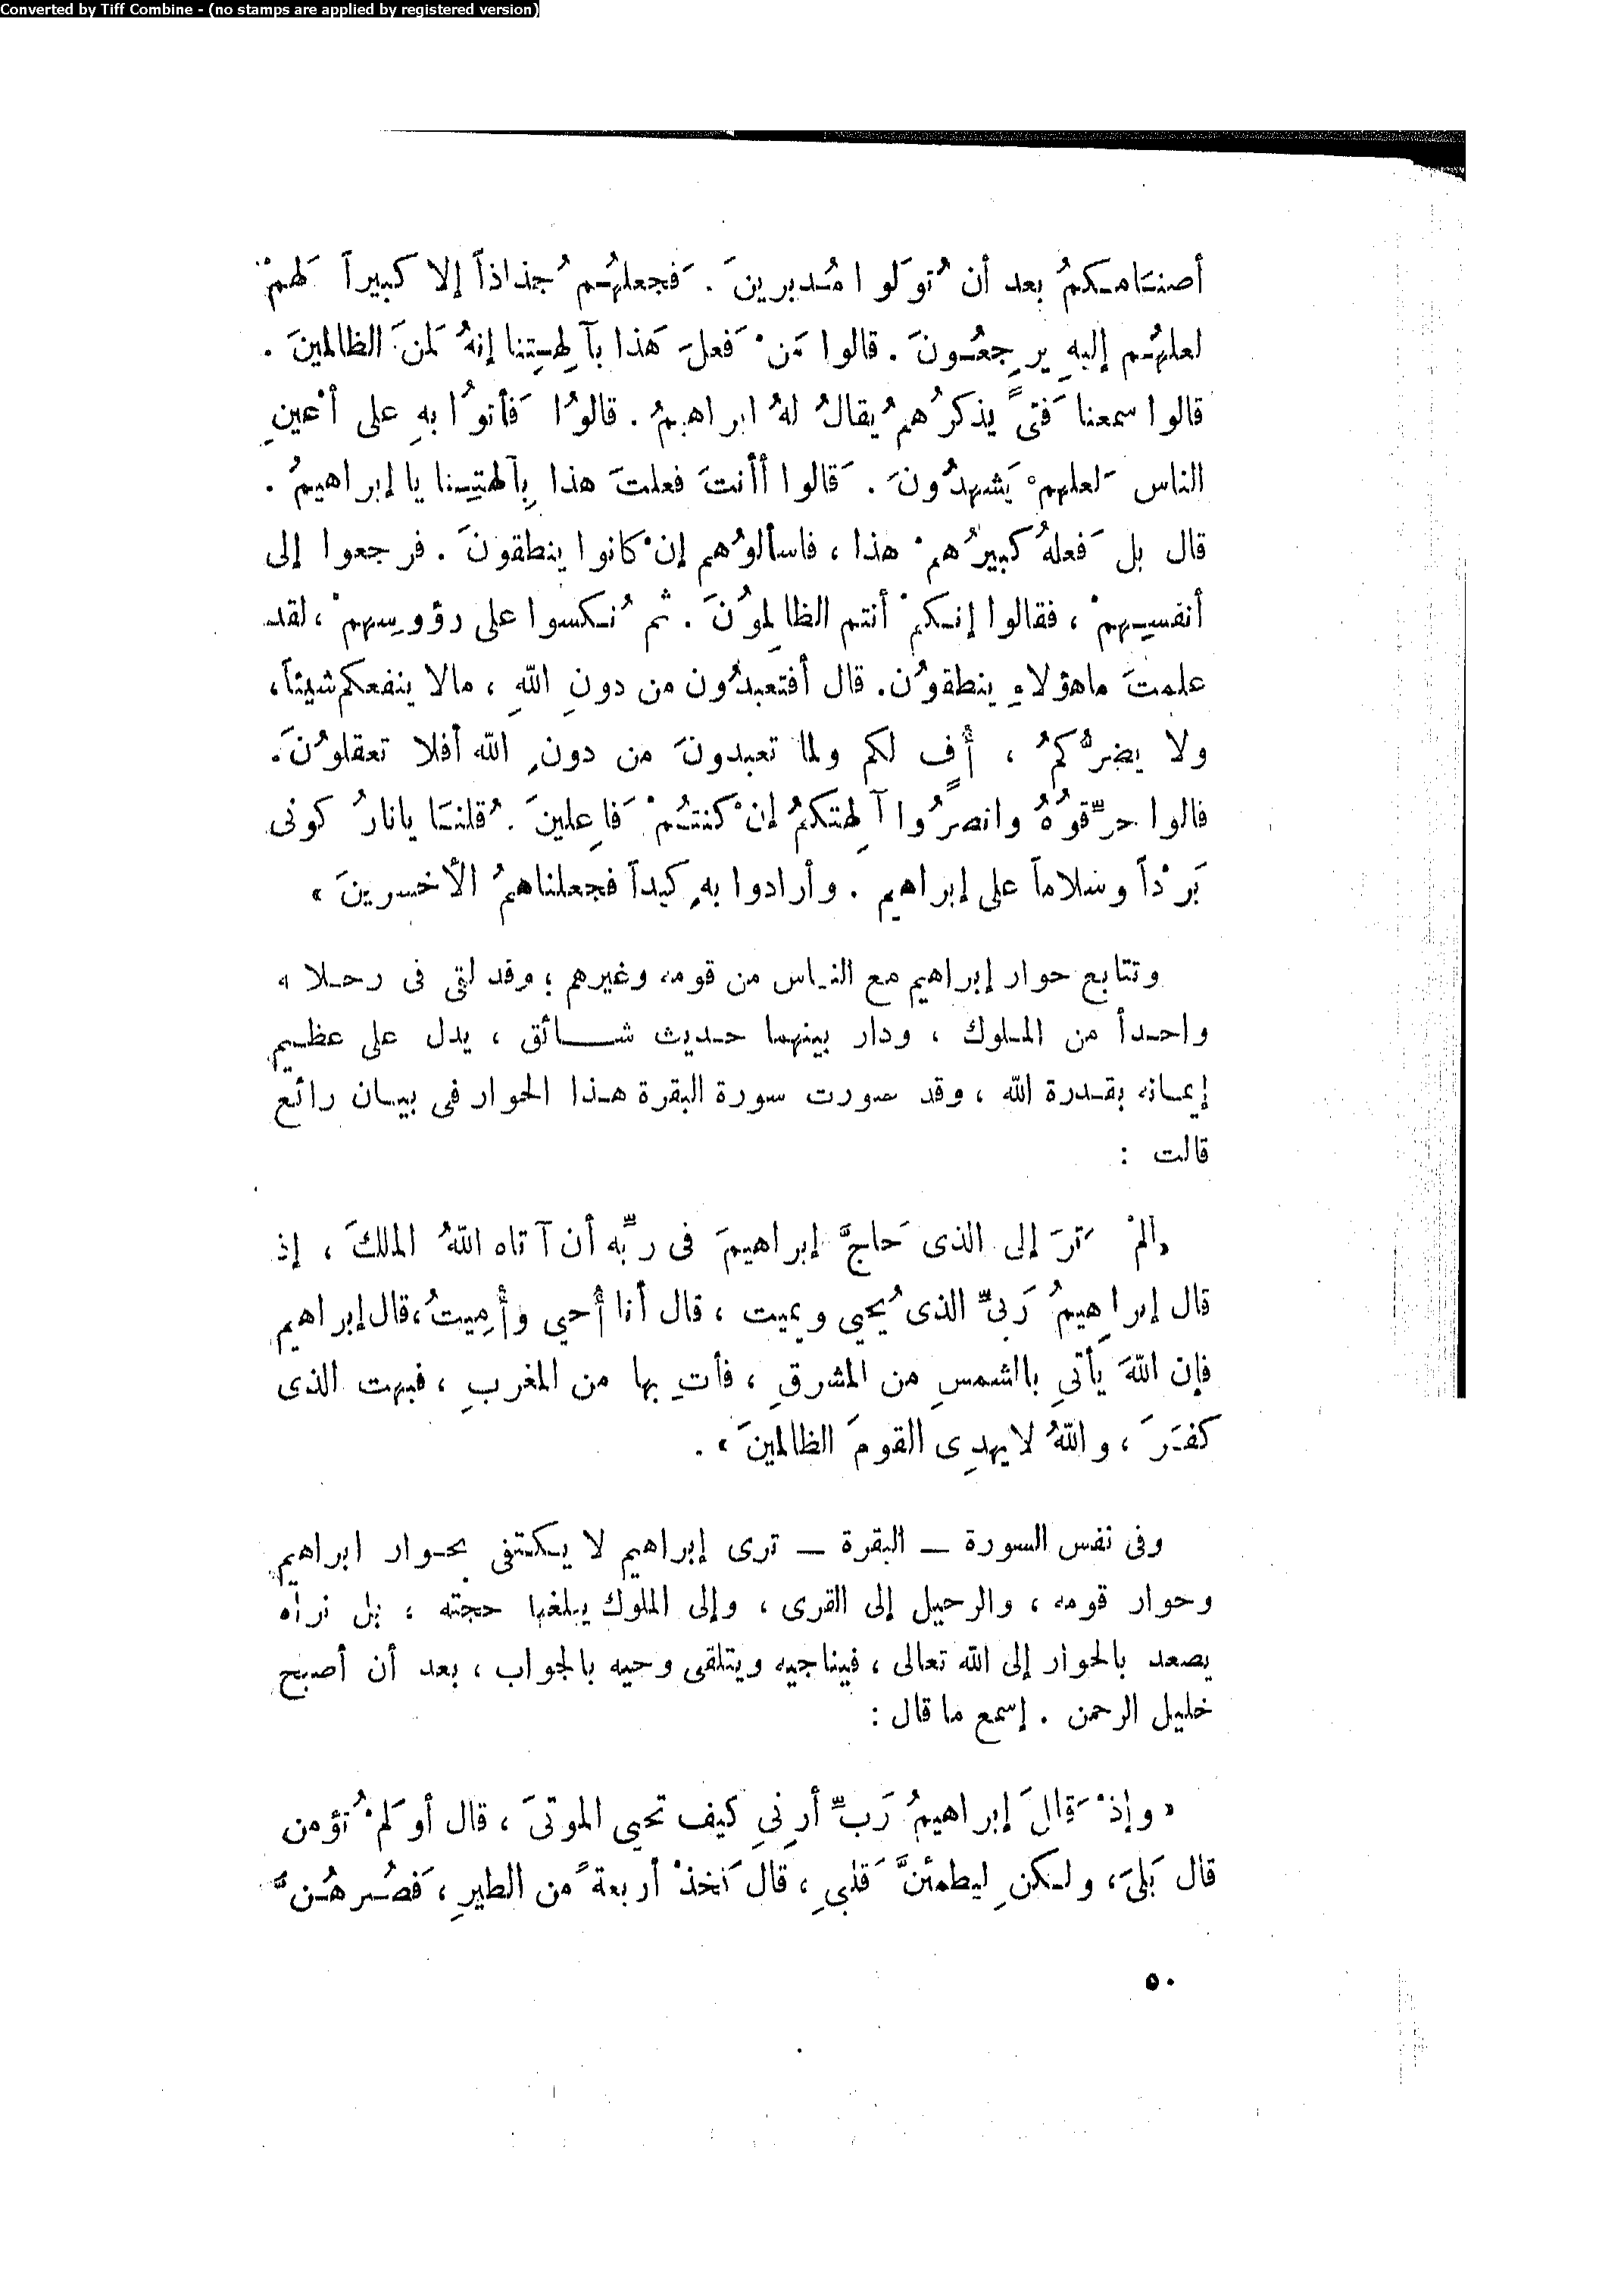 Converted by Tiff Combine - (no stamps are applied by registered version)
أصنَامكمُ بعد أن تُوَلوا مُدبرينَ . فَجعلهُم جُذاذاً إلا كبيراً لَهمْ
لعلهُم إليهِ يرجِعُونَ . قالوا مَنْ فَعلَ هَذا بآلِهتِنا إنهُ لَمنَ الظالمينَ .
قالوا سمعنا فَتىً يذكرُهم يُقالُ لهُ ابراهيمُ . قالوُا فَأتوُا بهِ على أعْينِ
الناس لَعلهمْ يَشهدُونَ . قَالوا أأنتَ فعلتَ هذا بِآلهتِنا يا إبراهيمُ .
قال بل فَعلهُ كبيرُهمْ هذا ، فاسألوُهم إنْ كانوا ينطقونَ . فرجعوا إلى
أنفسِهمْ ، فقالوا إنكمْ أنتم الظالِموُنَ . ثم نُكسوا على رؤوسِهمْ ، لقد
علمتَ ماهؤلاءِ ينطقوُن. قال أفتعبدُون من دونِ اللهِ ، مالا ينفعكم شيئاً،
ولا يضرُّكمُ ، أُفٍ لكم ولما تعبدونَ من دونِ الله أفلا تعقلوُنَ.
قالوا حرِّقوُهُ وانصرُوا آلِهتكمُ إنْ كنتمْ فَاعِلينَ . قُلنَا يانارُ كونى
بَرْداً وسَلاماً على إبراهيم . وأرادوا بهِ كيداً فجعلناهمُ الأخسرينَ »
وتتابع حوار إبراهيم مع الناس من قومه وغيرهم ؛ وقد لقى فى رحلاته
واحداً من الملوك ، ودار بينهما حديث شائق ، يدل على عظيم
إيمانه بقدرة الله ، وقد صورت سورة البقرة هذا الحوار فى بيان رائع
قالت :
« ألمْ تَرَ إلى الذى حَاجَّ إبراهيمَ فى ربِّه أن آتاه اللهُ الملكَ ، إذ
قال إبراهِيمُ رَبىِّ الذى يُحيى ويميت ، قال أنا أُحي وأُمِيتُ، قال إبراهيم
فإن اللهَ يأتىِ بالشمسِ من المشرقِ ، فأتِ بها من المغربِ ، فبهت الذى
كفَرَ ، واللهُ لا يهدِى القومَ الظالمينَ » .
وفى نفس السورة — البقرة — ترى إبراهيم لا يكتفى بحوار ابراهيم
وحوار قومه ، والرحيل إلى القرى ، وإلى الملوك يبلغها حجته ، بل نراه
يصعد بالحوار إلى الله تعالى ، فيناجيه ويتلقى وحيه بالجواب ، بعد أن أصبح
خليل الرحمن . إسمع ما قال :
« وإذْ قَالَ إبراهيمُ رَبِّ أرِنىِ كيف تحيى الموتىَ ، قال أوَلمْ تُؤمن
قال بَلىَ، ولكنِ ليطمئنَّ قَلبىِ ، قال فَخذْ أربعةً من الطيرِ ، فَصُرهُنَّ
٥٠